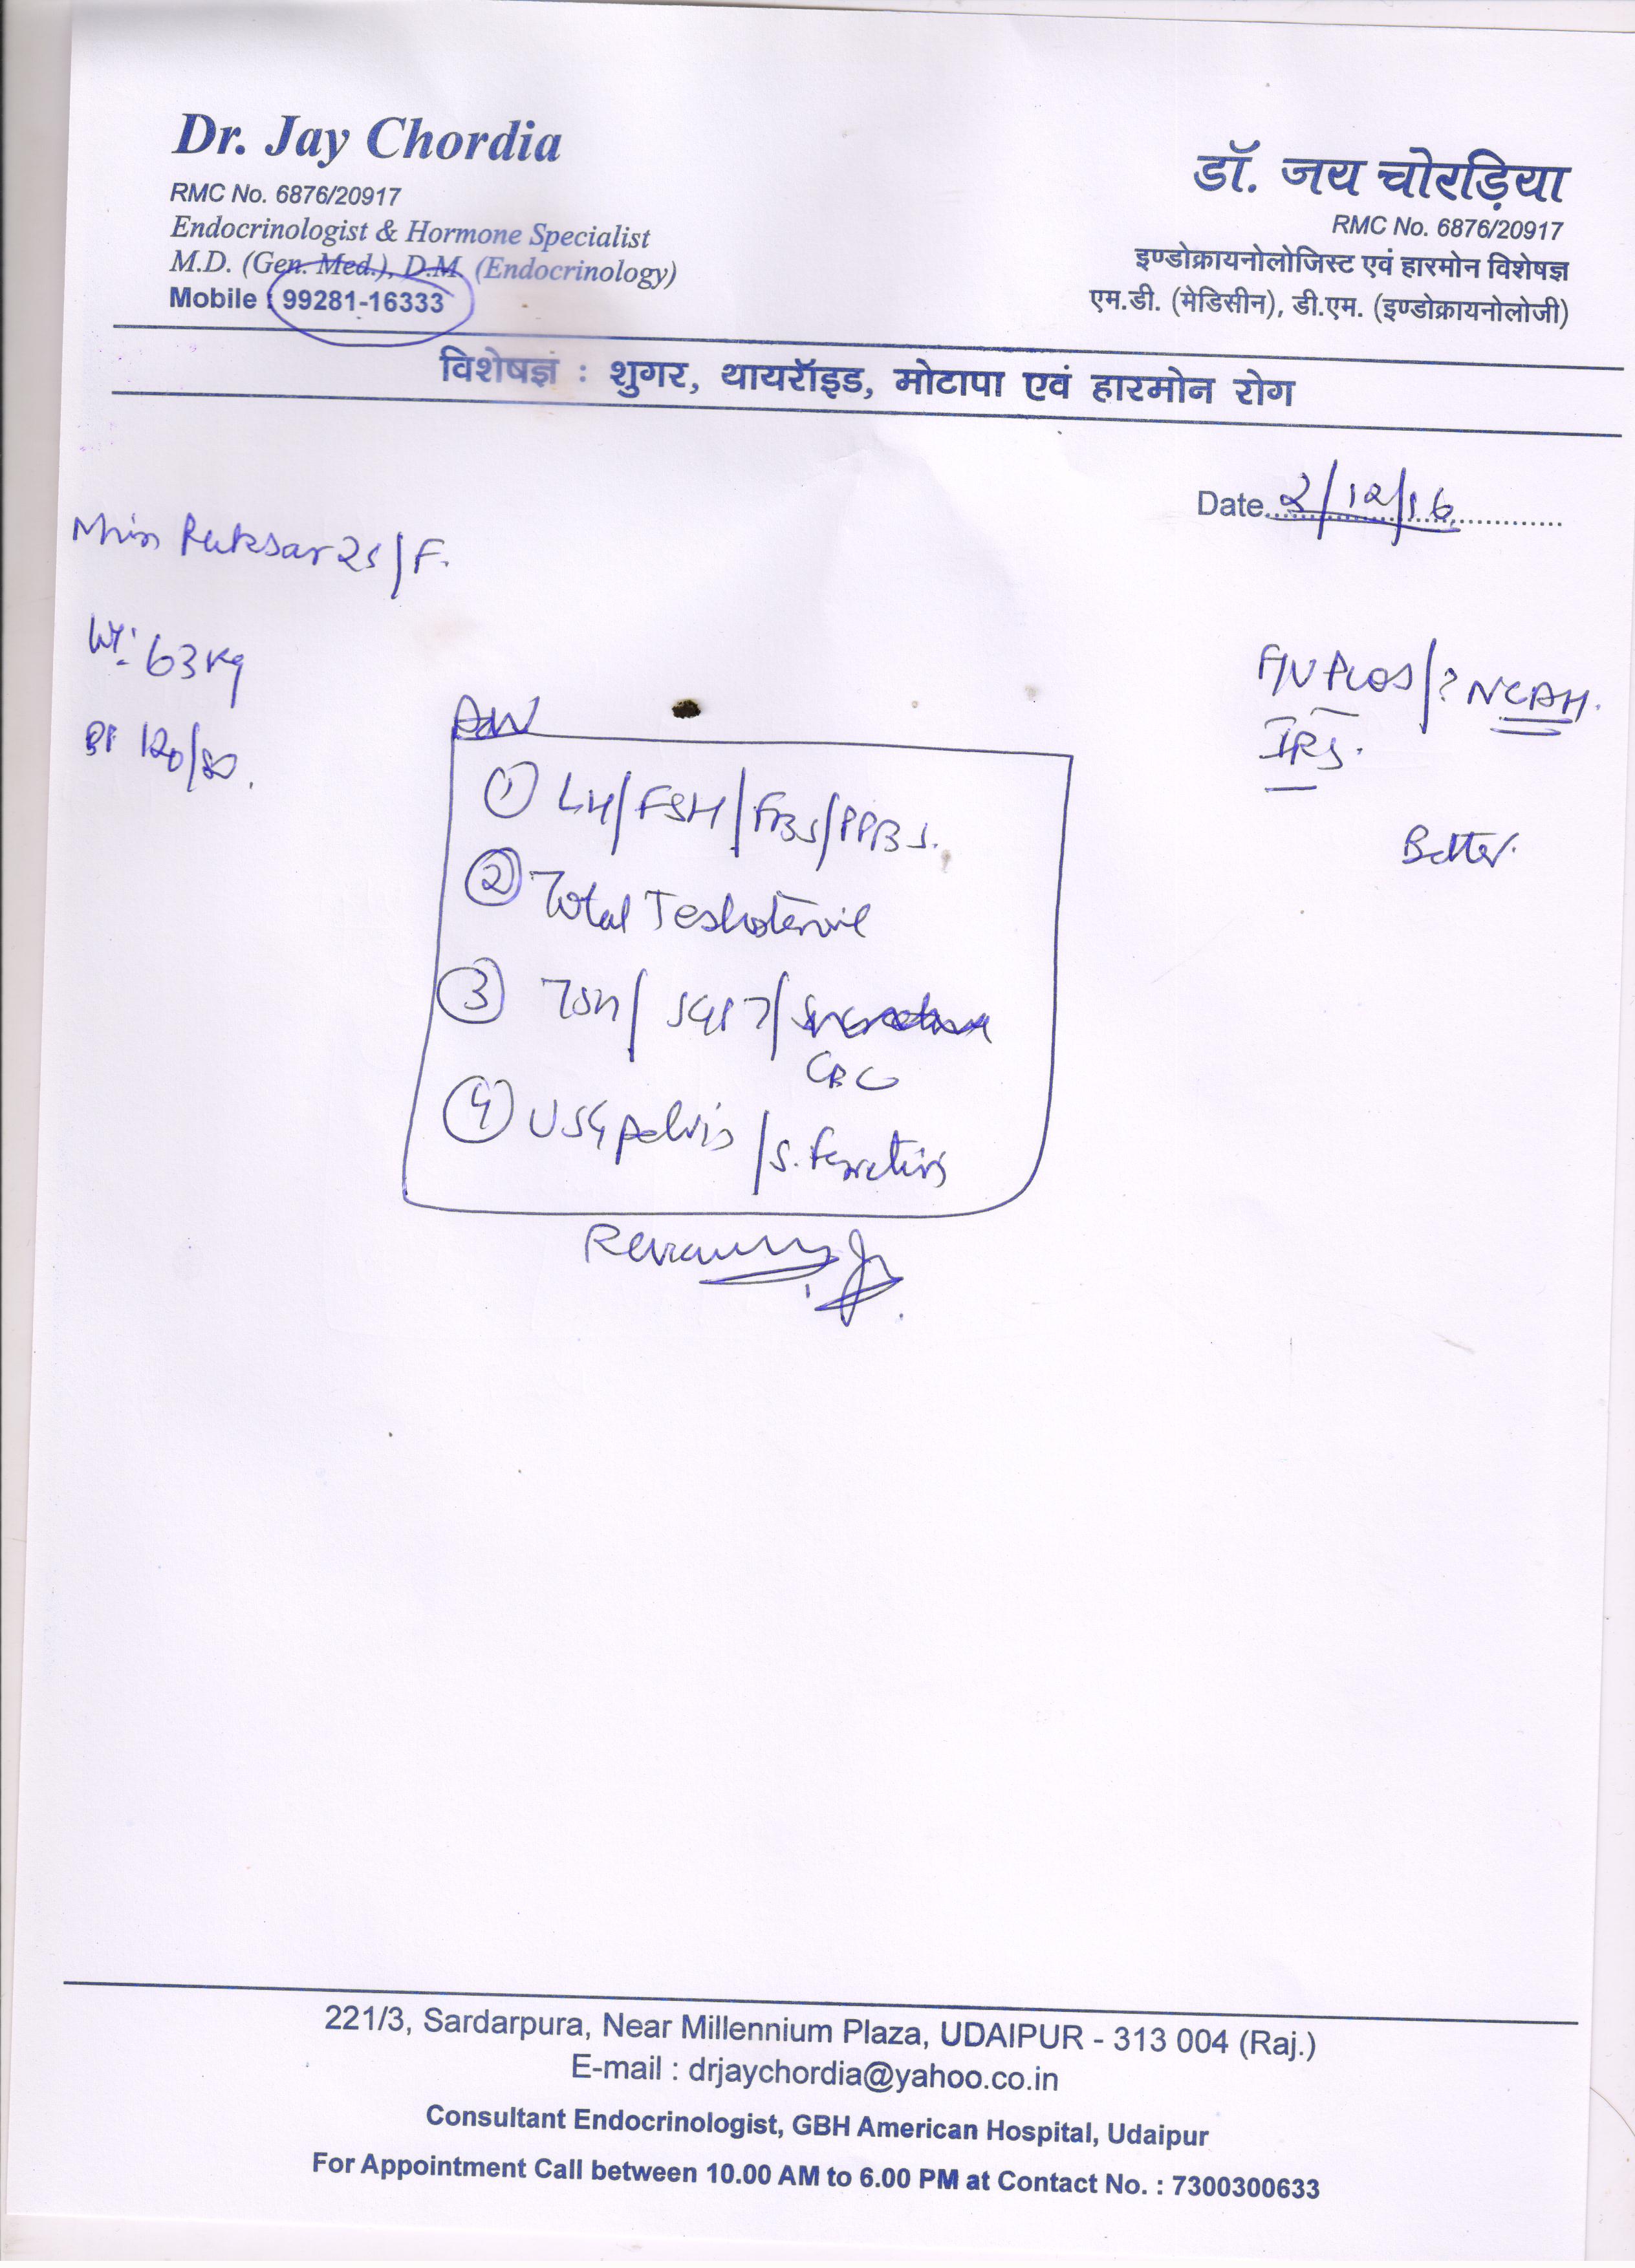 Dr. Jay Chordia
RMC No. 6876/20917
Endocrinologist & Hormone Specialist
M.D. (Gen. Med.), D.M. (Endocrinology)
Mobile : 99281-16333
डॉ. जय चोरड़िया
RMC No. 6876/20917
इण्डोक्रायनोलोजिस्ट एवं हारमोन विशेषज्ञ
एम.डी. (मेडिसीन), डी.एम. (इण्डोक्रायनोलोजी)
विशेषज्ञ : शुगर, थायरॉइड, मोटापा एवं हारमोन रोग
Date 2/12/16
Miss Ruksar 25/F.
Wt: 63 kg
BP 120/80.
F/U PCOS/? NCAH.
IRS.
Better.
Adv
① LH/FSH/FBS/PPBS.
② Total Testosterone
③ TSH/SGPT/
CBC
④ USG pelvis/S. Ferritin
221/3, Sardarpura, Near Millennium Plaza, UDAIPUR - 313 004 (Raj.)
E-mail : drjaychordia@yahoo.co.in
Consultant Endocrinologist, GBH American Hospital, Udaipur
For Appointment Call between 10.00 AM to 6.00 PM at Contact No. : 7300300633